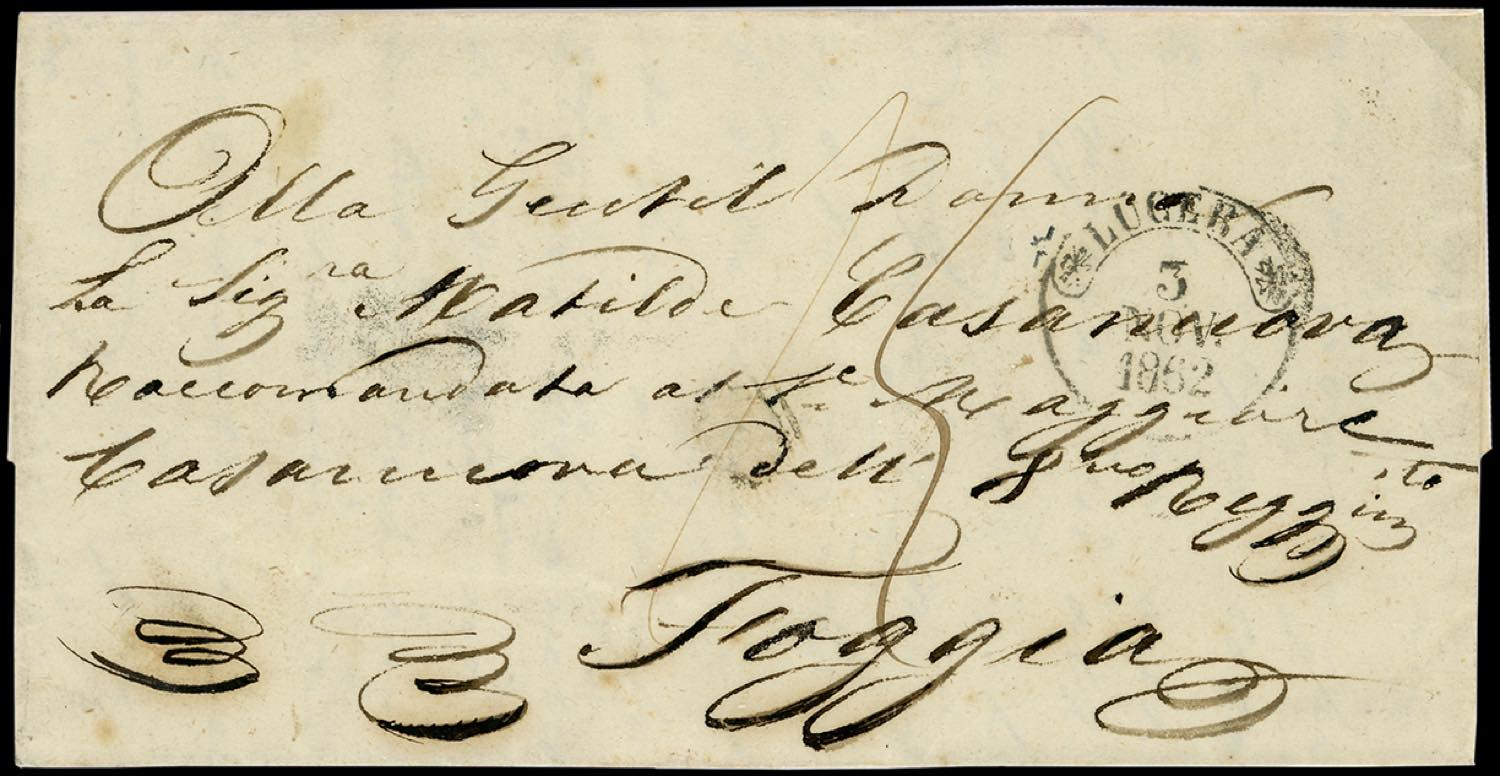 Alla Gentil Donna
La Sig.ra Matilde Casanuova
Raccomandata al Sr. Maggiore
Casanuova dell' 8vo Reggito in
Foggia
LUCERA
3
NOV.
1862